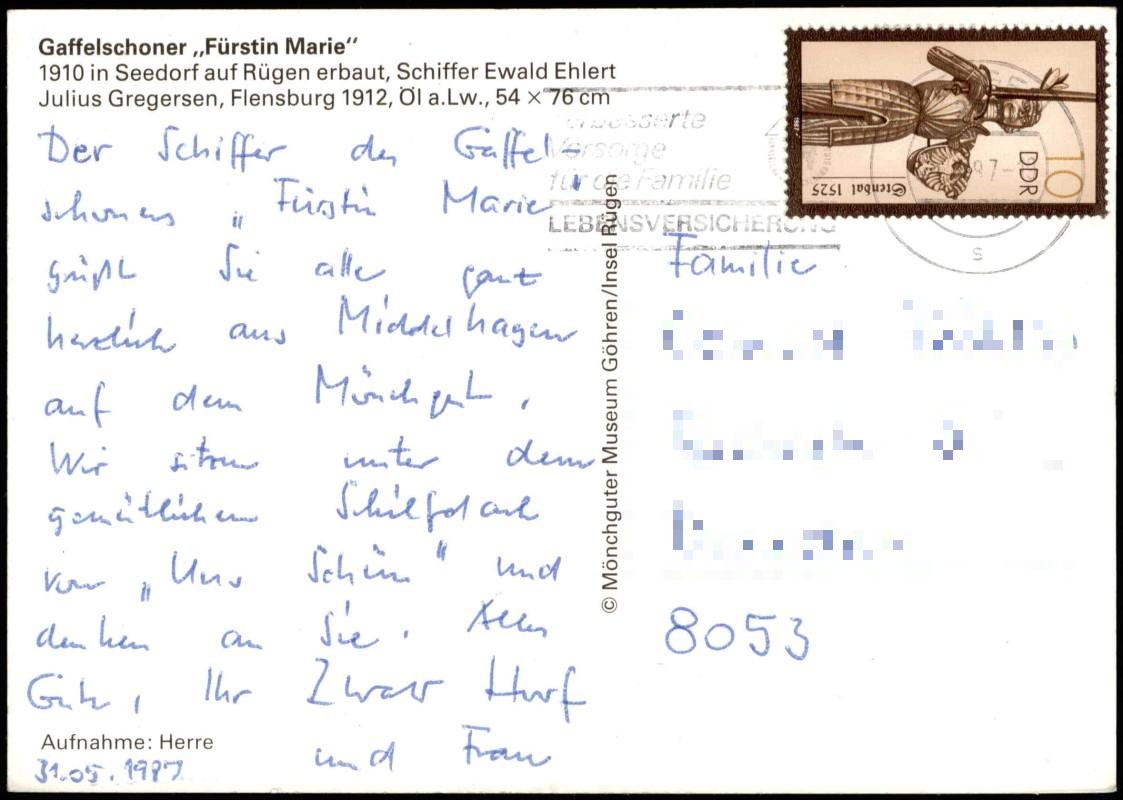 Gaffelschoner „Fürstin Marie“
1910 in Seedorf auf Rügen erbaut, Schiffer Ewald Ehlert
Julius Gregersen, Flensburg 1912, Öl a.Lw., 54 × 76 cm
Der Schiffer des Gaffel-
schoners „Fürstin Marie“
grüßt Sie alle ganz
herzlich aus Middelhagen
auf dem Mönchgut.
Wir sitzen unter dem
gemütlichen Schilfdach
von „Uns Schün“ und
denken an Sie. Alles
Gute, Ihr
und Frau
Aufnahme: Herre
31.05.1987
© Mönchguter Museum Göhren/Insel Rügen
verbesserte
Vorsorge
für die Familie
LEBENSVERSICHERUNG
Stendal 1525
DDR
10
S
Familie
8053